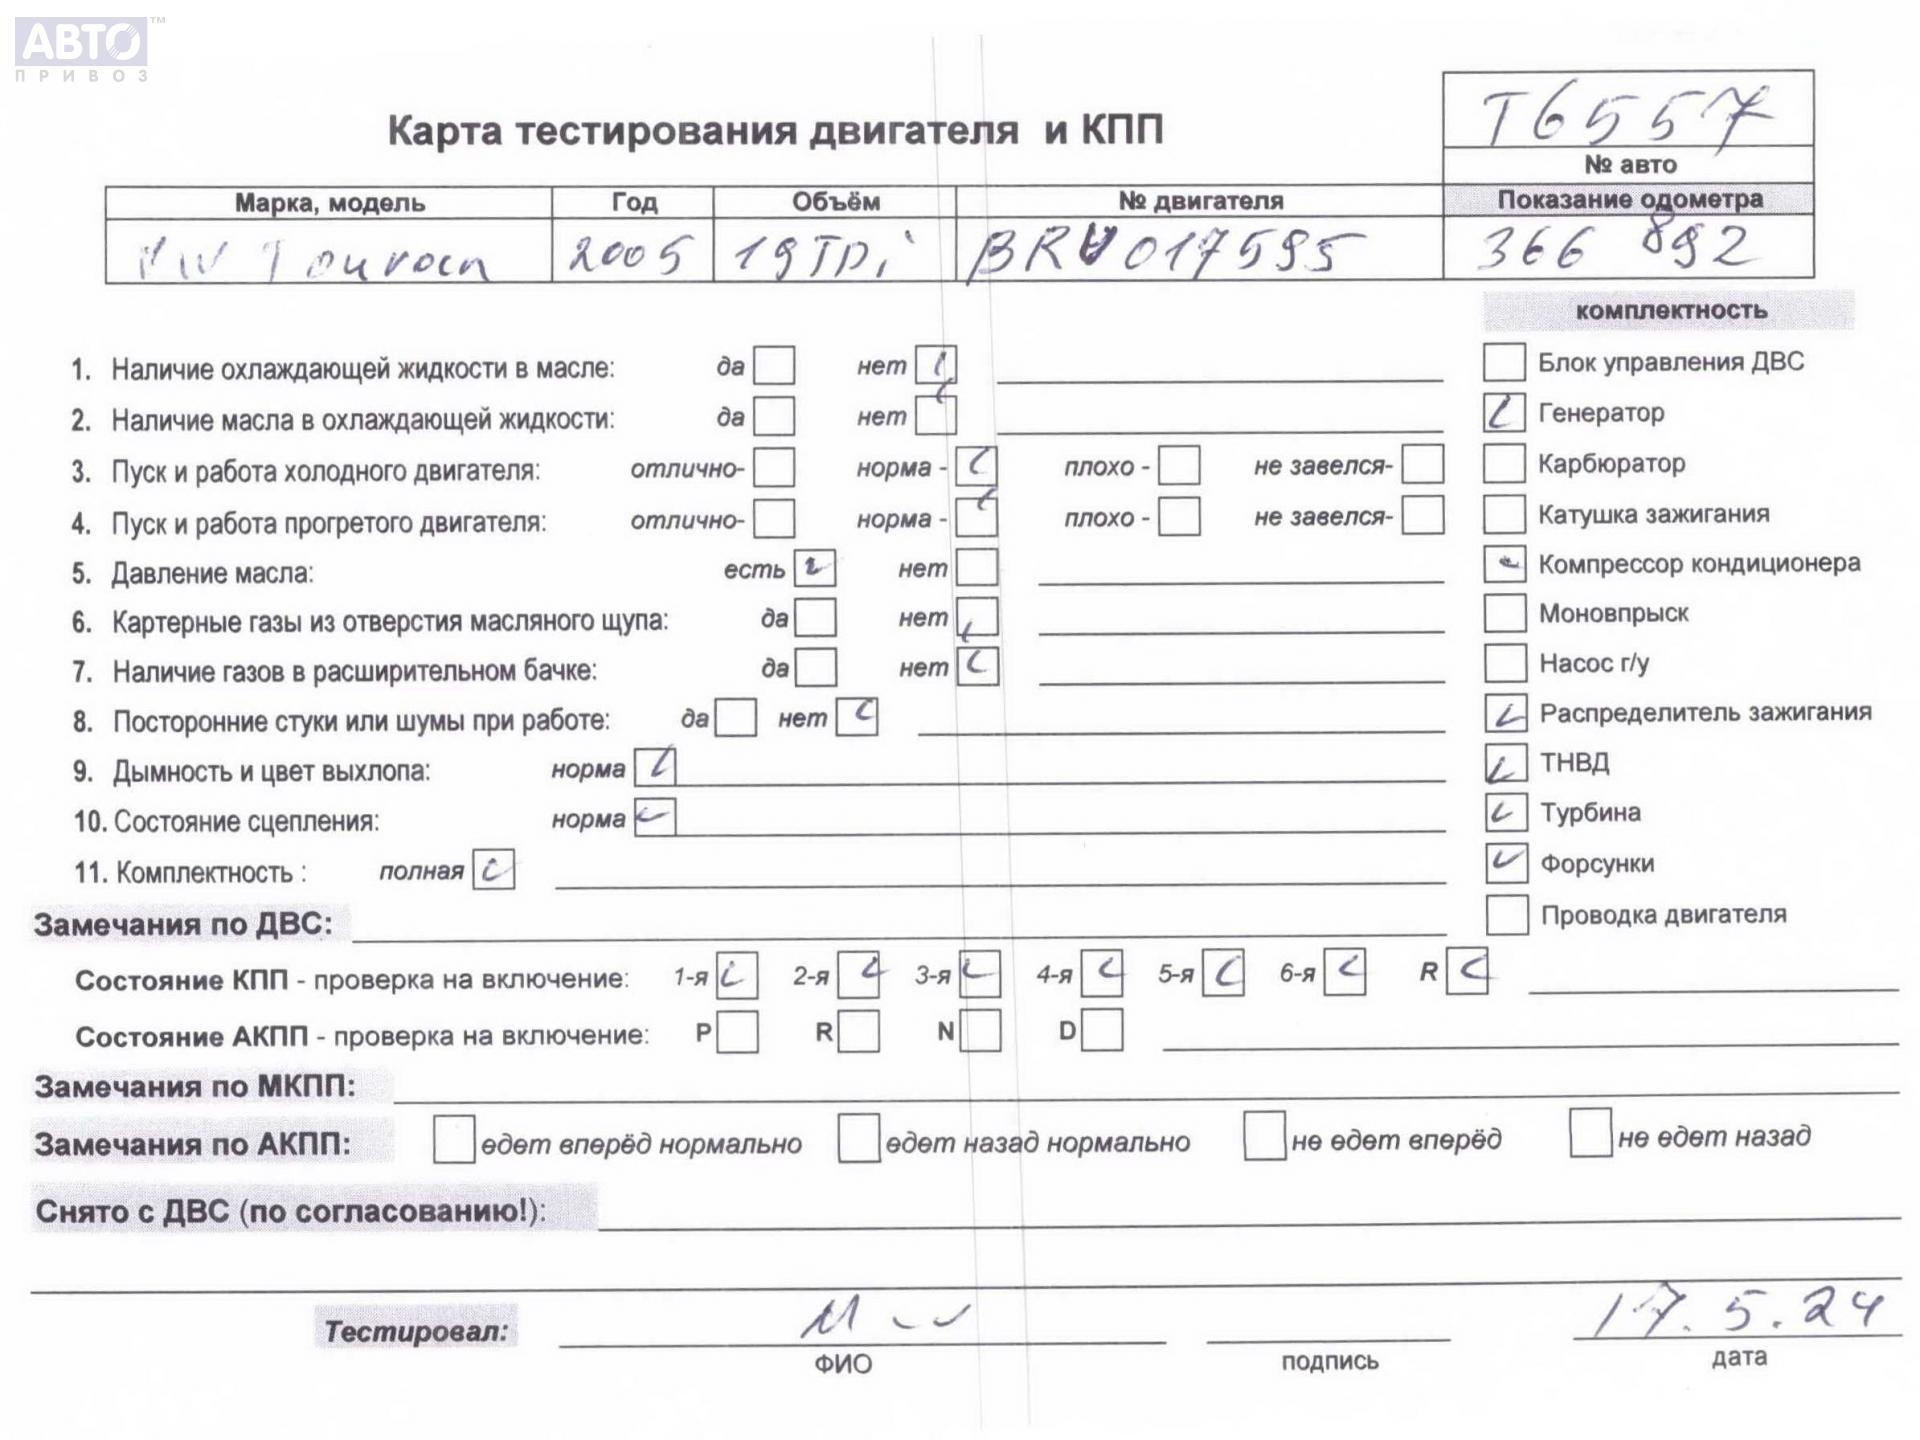 АВТО™
ПРИВОЗ
Т6557
Карта тестирования двигателя и КПП
№ авто
Марка, модель Год Объём № двигателя Показание одометра
VW Touran 2005 19TDi BRU017595 366 892
комплектность
1. Наличие охлаждающей жидкости в масле: да нет Блок управления ДВС
2. Наличие масла в охлаждающей жидкости: да нет Генератор
3. Пуск и работа холодного двигателя: отлично- норма - плохо - не завелся- Карбюратор
4. Пуск и работа прогретого двигателя: отлично- норма - плохо - не завелся- Катушка зажигания
5. Давление масла: есть нет Компрессор кондиционера
6. Картерные газы из отверстия масляного щупа: да нет Моновпрыск
7. Наличие газов в расширительном бачке: да нет Насос г/у
8. Посторонние стуки или шумы при работе: да нет Распределитель зажигания
9. Дымность и цвет выхлопа: норма ТНВД
10. Состояние сцепления: норма Турбина
11. Комплектность : полная Форсунки
Замечания по ДВС: Проводка двигателя
Состояние КПП - проверка на включение: 1-я 2-я 3-я 4-я 5-я 6-я R
Состояние АКПП - проверка на включение: P R N D
Замечания по МКПП:
Замечания по АКПП: едет вперёд нормально едет назад нормально не едет вперёд не едет назад
Снято с ДВС (по согласованию!):
Тестировал: 17.5.24
ФИО подпись дата